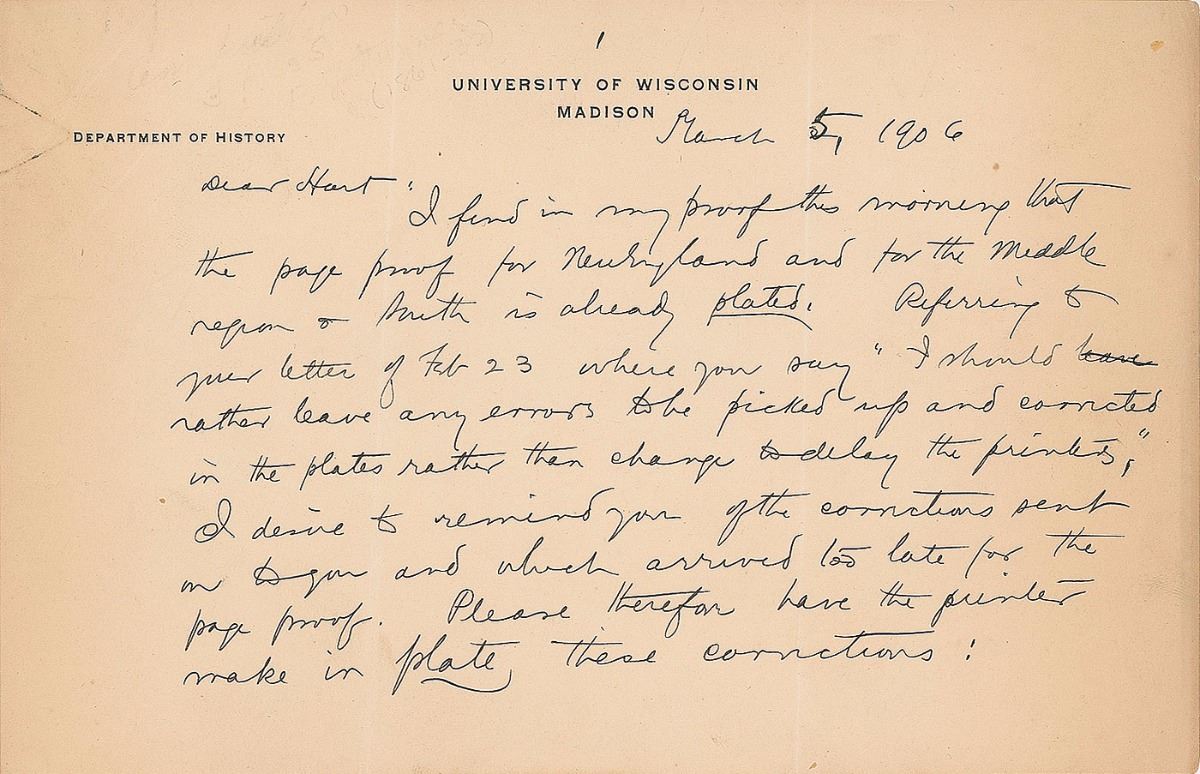 1
UNIVERSITY OF WISCONSIN
MADISON
March 5, 1906
DEPARTMENT OF HISTORY
Dear Hart:
I find in my proof this morning that
the page proof for New England and for the Middle
region & South is already plated. Referring to
your letter of Feb 23 where you say "I should leave
rather leave any errors to be picked up and corrected
in the plates rather than change to delay the printers",
I desire to remind you of the corrections sent
on to you and which arrived too late for the
page proof. Please therefor have the printer
make in plate these corrections: